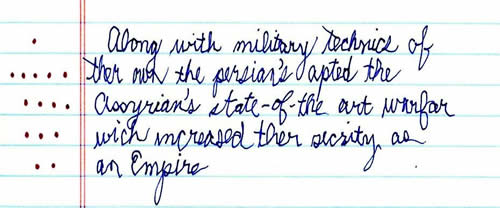 Along with military technics of
ther own the persian's apted the
Assyrian's state-of-the art warfar
wich increased ther secrity as
an Empire